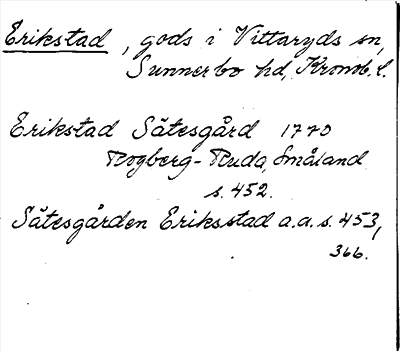 Erikstad, gods i Vittaryds sn,
Sunnerbo hd, Kronob. l.
Erikstad Sätesgård 1770
Rogberg-Ruda, Småland
s. 452.
Sätesgården Eriksstad a.a. s. 453,
366.